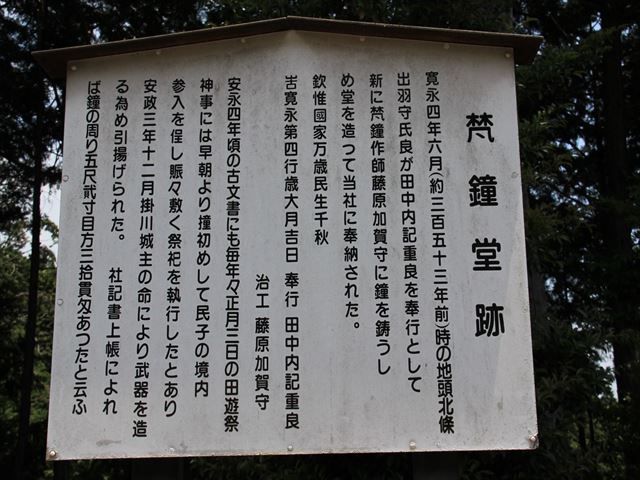 梵鐘堂跡
寛永四年六月(約三百五十三年前)時の地頭北條
出羽守氏良が田中内記重良を奉行として
新に梵鐘作師藤原加賀守に鐘を鋳うし
め堂を造つて当社に奉納された。
欽惟國家万歳民生千秋
旹寛永第四行歳大月吉日 奉行 田中内記重良
治工 藤原加賀守
安永四年頃の古文書にも毎年々正月三日の田遊祭
神事には早朝より撞初めして民子の境内
参入を促し賑々敷く祭祀を執行したとあり
安政三年十二月掛川城主の命により武器を造
る為め引揚げられた。 社記書上帳によれ
ば鐘の周り五尺弐寸目方三拾貫匁あつたと云ふ